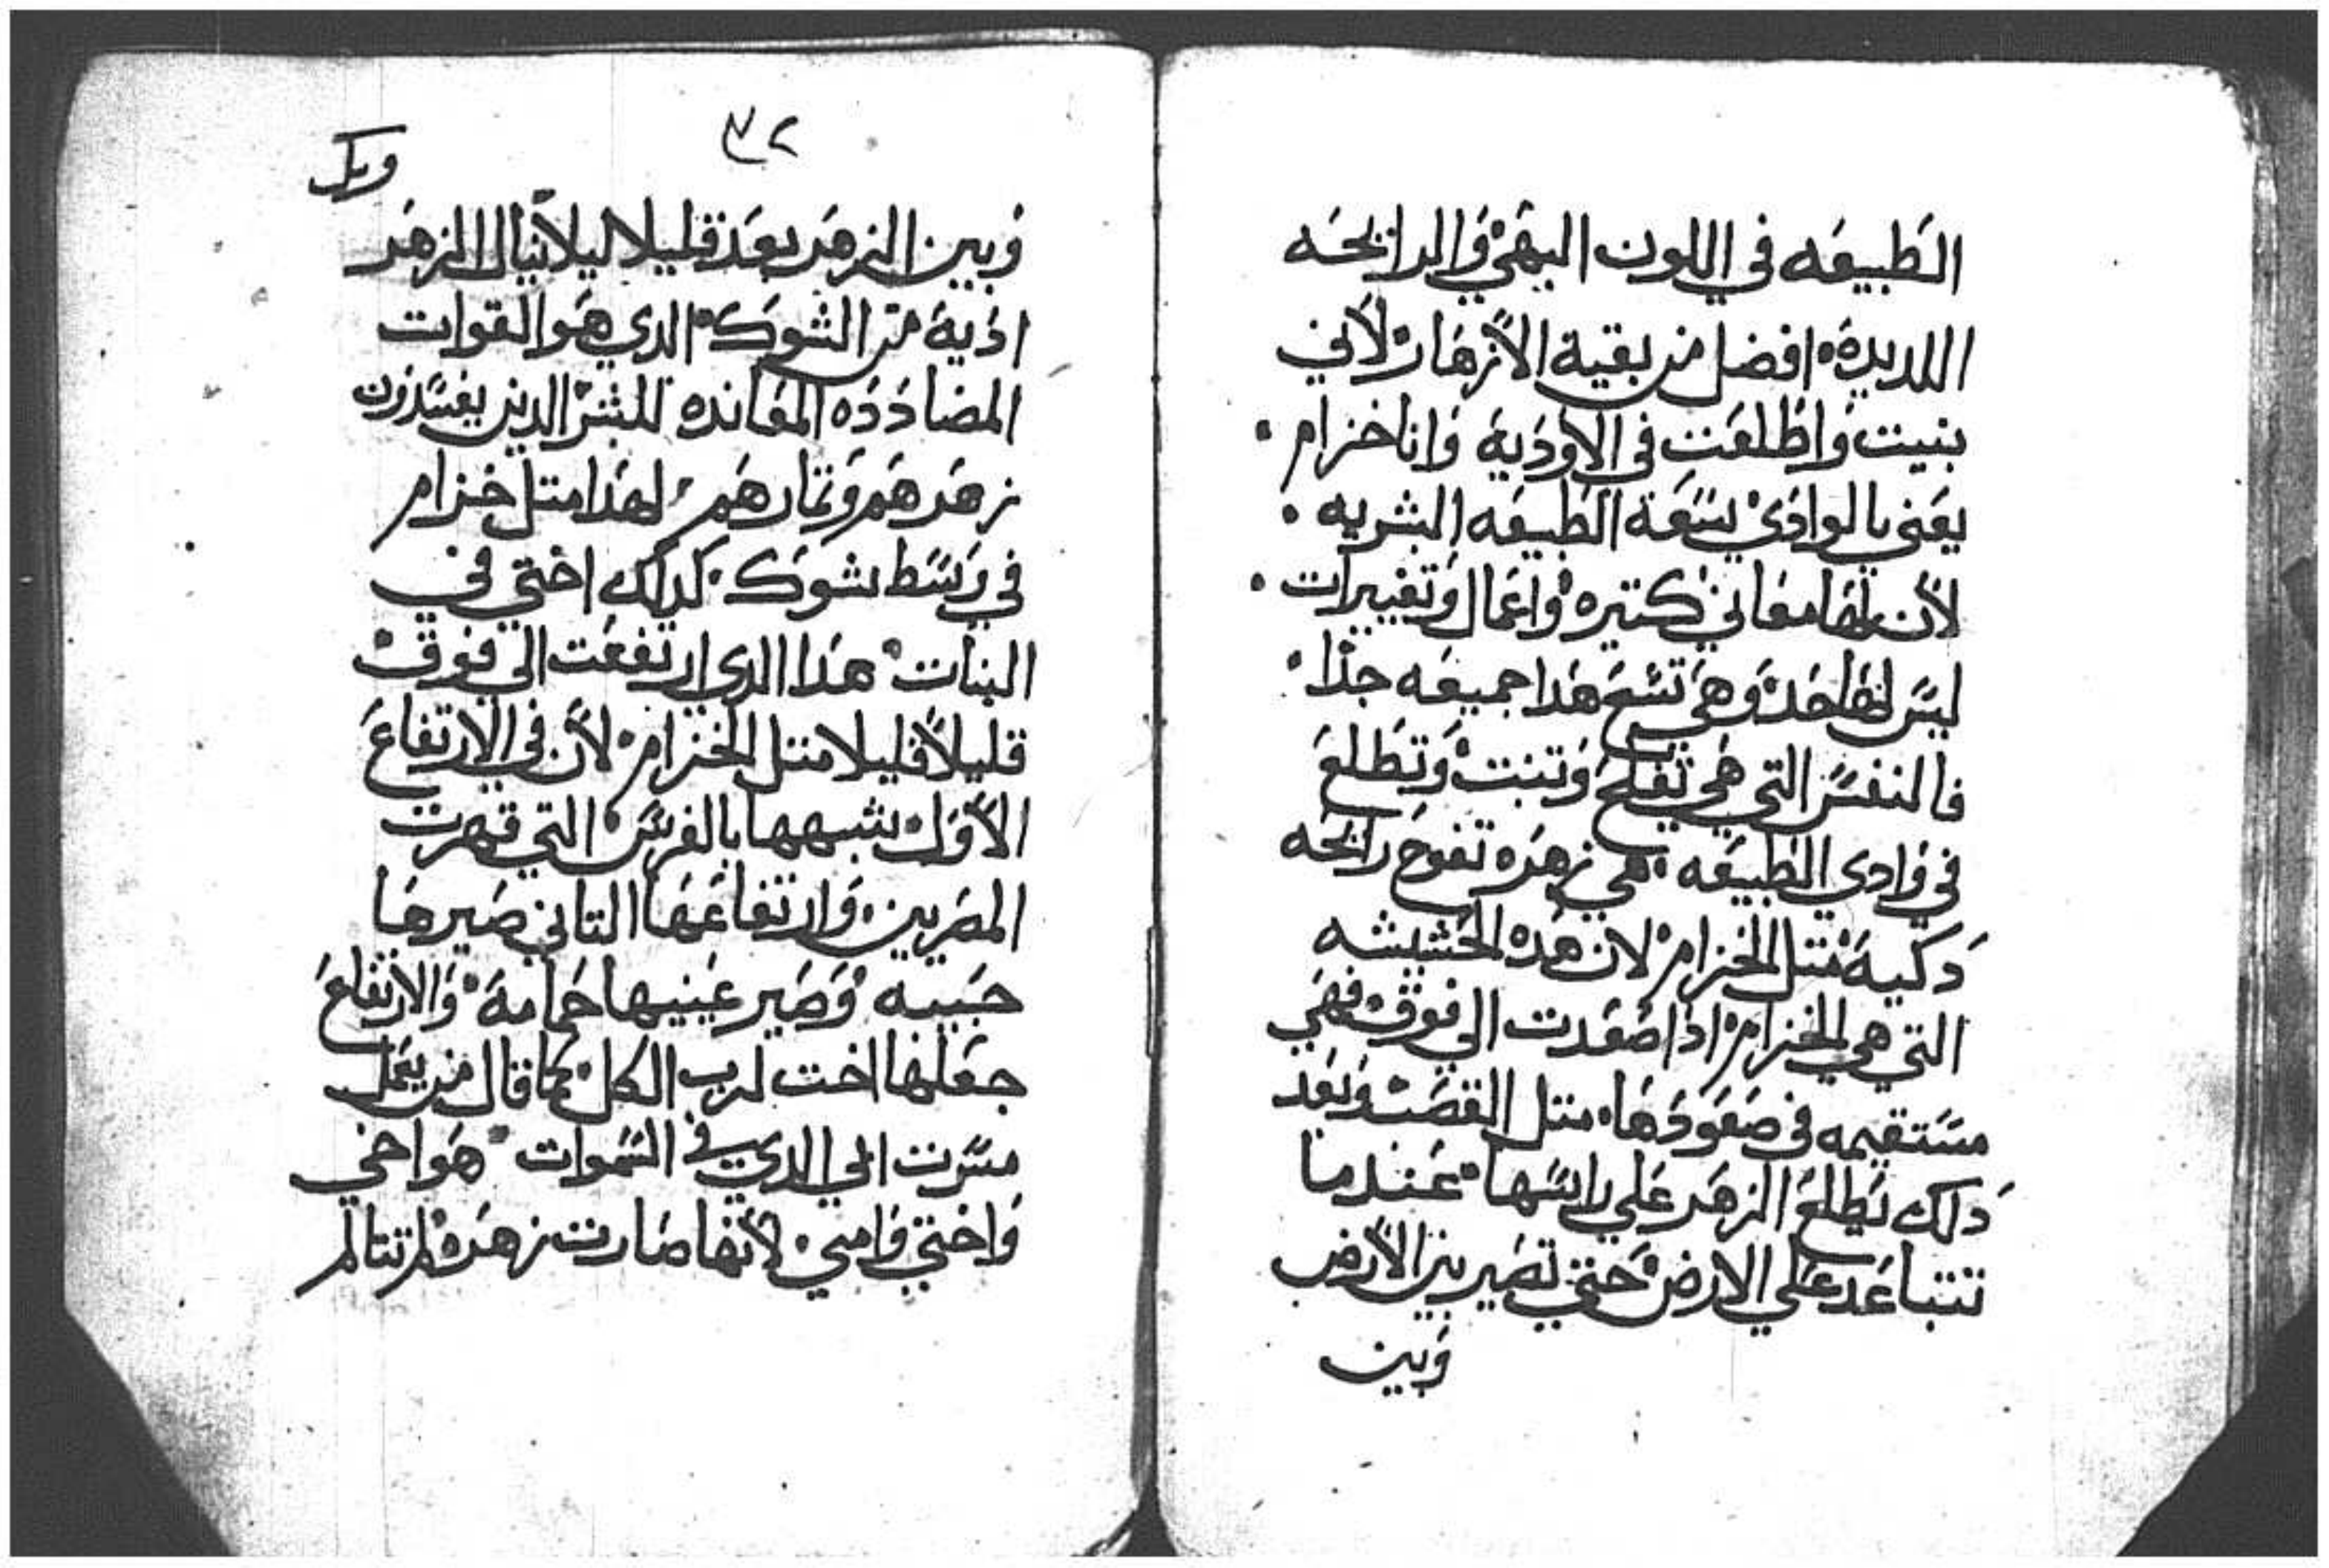 الطبيعه في اللون البهي والرايحه
اللديده افضل من بقية الأزهار لأني
بنيت واطلعت في الأودية وانا خزام
يعني بالوادي سعة الطبيعه البشريه
لأن لها معاني كتيره واعمال وتغييرات
ليس لها حد وهي تسع هدا جميعه جدًا
فالنفس التي هي تفلح وتنبت وتطلع
في وادي الطبيعه هي زهره تفوح رايحه
دكية متل الخزام لان هده الحشيشه
التي هي الخزام ادا صعدت الي فوق فهي
مستقيمه في صعودها متل القصب وبعد
دلك يطلع الزهر علي راسها عندما
تتباعد علي الارض حتي تصير بين الأرض
وبين
٣٢
وبك
وبين الزهر بعد قليلا ليلا ينال الزهر
ادية من الشوك الدي هو القوات
المضادده المعانده للبشر الدين يفسدون
زهرهم وتمارهم لهدا متل خزام
في وسط شوك كدلك اختي في
البنات هدا الدي ارتفعت الي فوق
قليلاً قليلا متل الخزام لأن في الارتفاع
الأول شبهها بالفرس التي قهرت
المصريين وارتفاعها التاني صيرها
حبيبه وصير عينيها حمامة والارتفاع
جعلها اخت لرب الكل كما قال من يعمل
مسرت ابي الدي في السموات هو اخي
واختي وامي لأنها صارت زهره لم تتالم